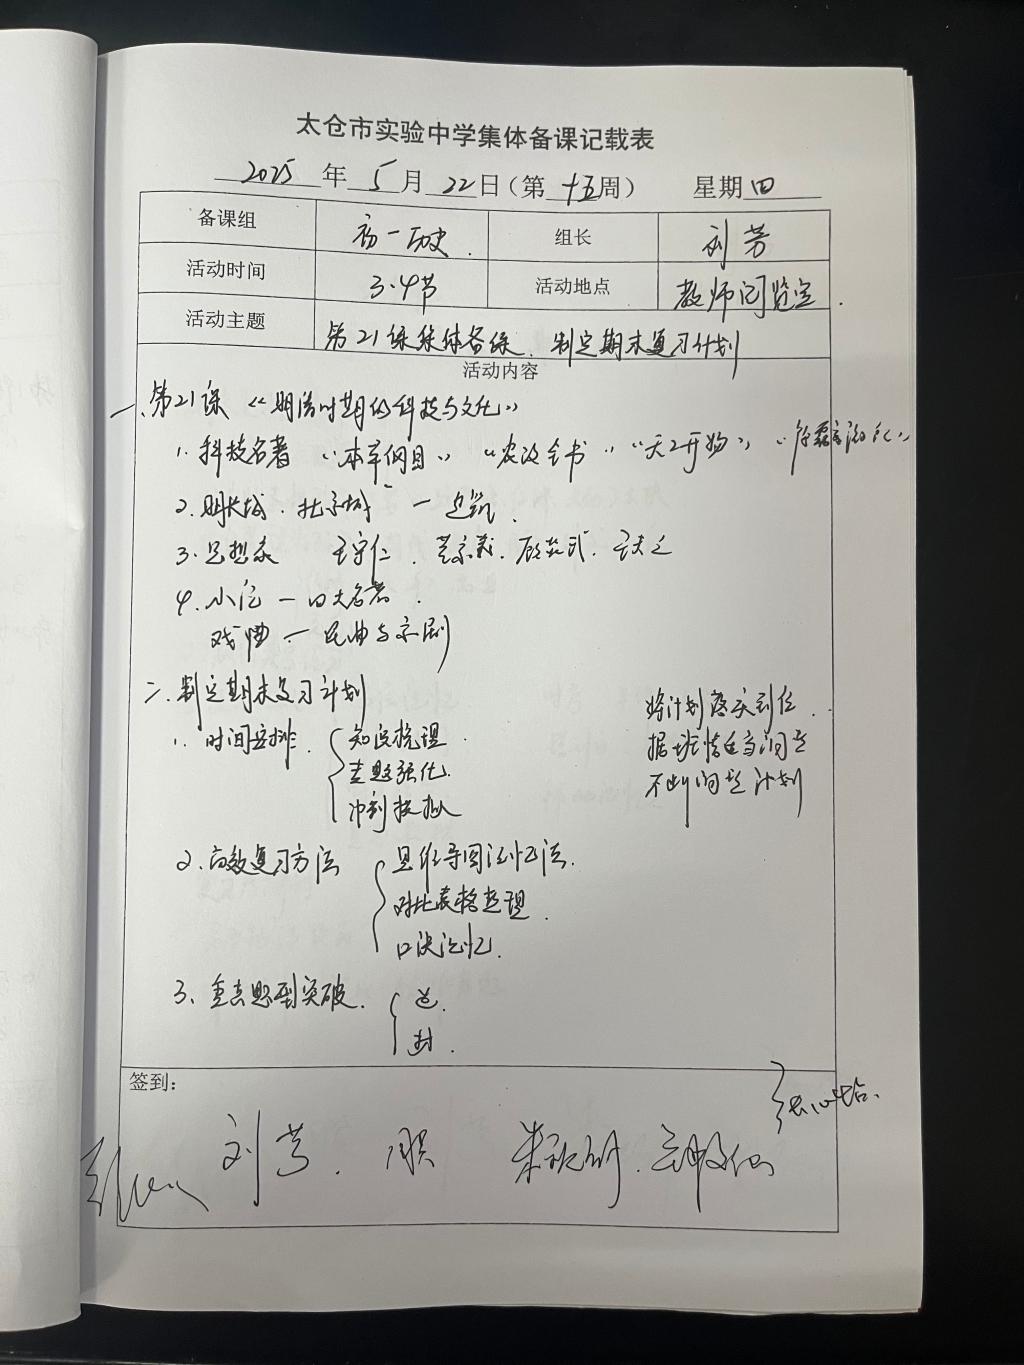 太仓市实验中学集体备课记载表
2025年5月22日(第十五周) 星期四
备课组 初一历史. 组长 刘芳
活动时间 3.4节 活动地点 教师阅览室.
活动主题 第21课集体备课. 制定期末复习计划
活动内容
一.第21课《明清时期的科技与文化》
1.科技名著 "本草纲目" "农政全书" "天工开物" "徐霞客游记"
2.明长城.北京城 — 建筑.
3.思想家 王守仁.黄宗羲.顾炎武.王夫之
4.小说 — 四大名著.
戏曲 — 昆曲与京剧
二.制定期末复习计划
1.时间安排. 知识梳理.
专题强化.
冲刺模拟
将计划落实到位.
据班情
计划
2.高效复习方法 思维导图记忆法.
对比表格整理.
口诀记忆.
3.重点题型突破. 选.
材.
签到:
刘芳.